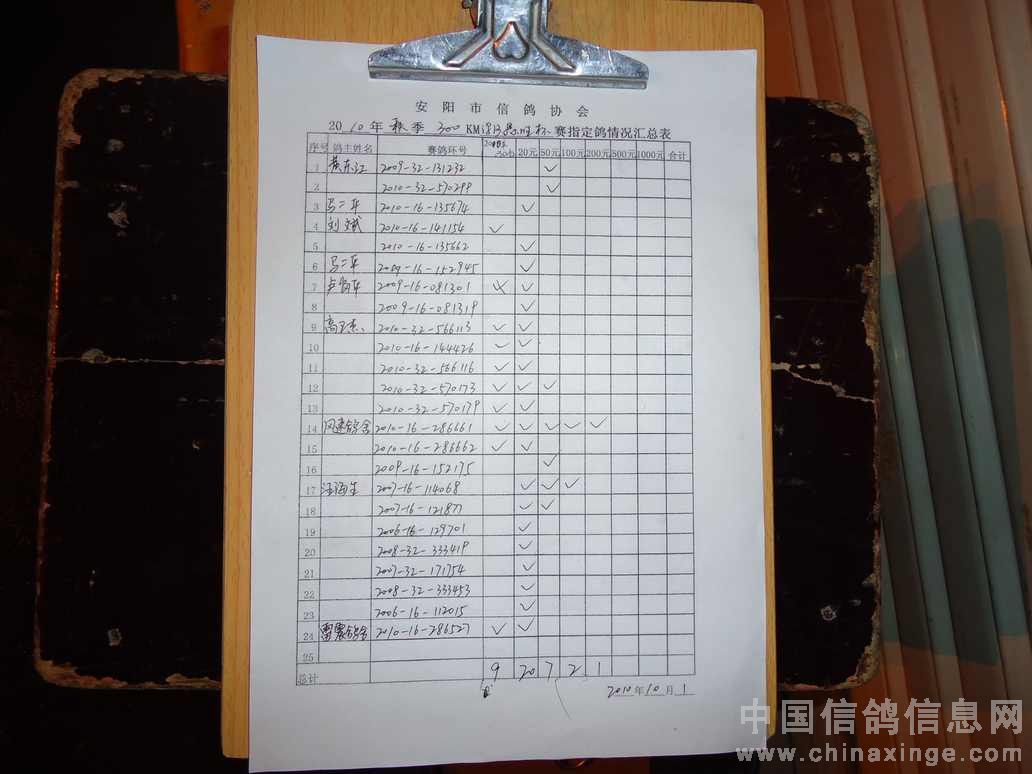 安阳市信鸽协会
2010年秋季300KM 杯赛指定鸽情况汇总表
序号 鸽主姓名 赛鸽环号 20元 50元 100元 200元 500元 1000元 合计
1 2009-32-131232 ✓
2 2010-32-570298 ✓
3 马二平 2010-16-135674 ✓
4 刘斌 2010-16-141154 ✓
5 2010-16-135662 ✓
6 马二平 2009-16-152945 ✓
7 2009-16-081301 ✓
8 2009-16-081319 ✓
9 2010-32-566113 ✓ ✓
10 2010-16-144426 ✓ ✓
11 2010-32-566116 ✓ ✓
12 2010-32-570173 ✓ ✓ ✓
13 2010-32-570179 ✓ ✓
14 鸽舍 2010-16-286661 ✓ ✓ ✓ ✓ ✓
15 2010-16-286662 ✓ ✓
16 2009-16-152175 ✓
17 2007-16-114068 ✓ ✓ ✓
18 2007-16-121877 ✓ ✓
19 2006-16-129701 ✓
20 2008-32-333419 ✓
21 2007-32-171754 ✓
22 2008-32-333453 ✓
23 2006-16-112015 ✓
24 雷震鸽舍 2010-16-286527 ✓ ✓
25
总计 9 20 7 2 1
2010年10月1
中国信鸽信息网
www.chinaxinge.com